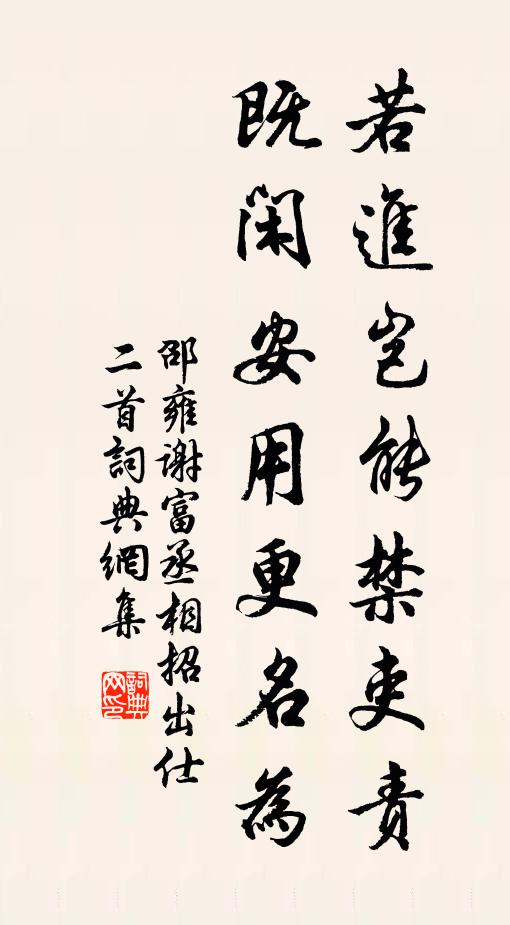 若進豈能禁吏責
既閑安用更名為
邵雍謝富丞相招出仕
二首詞典網集
詞典網印